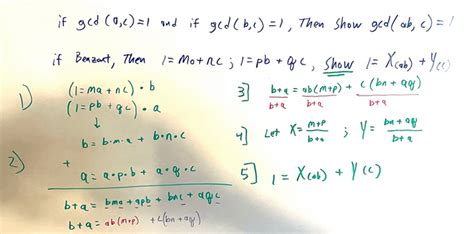 if gcd (a,c)=1 and if gcd (b,c)=1, Then show gcd(ab, c) = 1
if Bezout, Then 1=Ma+nc ; 1=pb + qc, show 1= X(ab) + Y(c)
1) (1=ma+nc)·b
(1=pb+qc)·a
↓
b = b·m·a + b·n·c
2) +
a = a·p·b + a·q·c
b+a = bma+apb + bnc + aqc
b+a = ab(m+p) +c(bn+aq)
3] b+a/b+a = ab(m+p)/b+a + c(bn+aq)/b+a
4] Let X= m+p/b+a ; Y= bn+aq/b+a
5] 1 = X(ab) + Y(c)